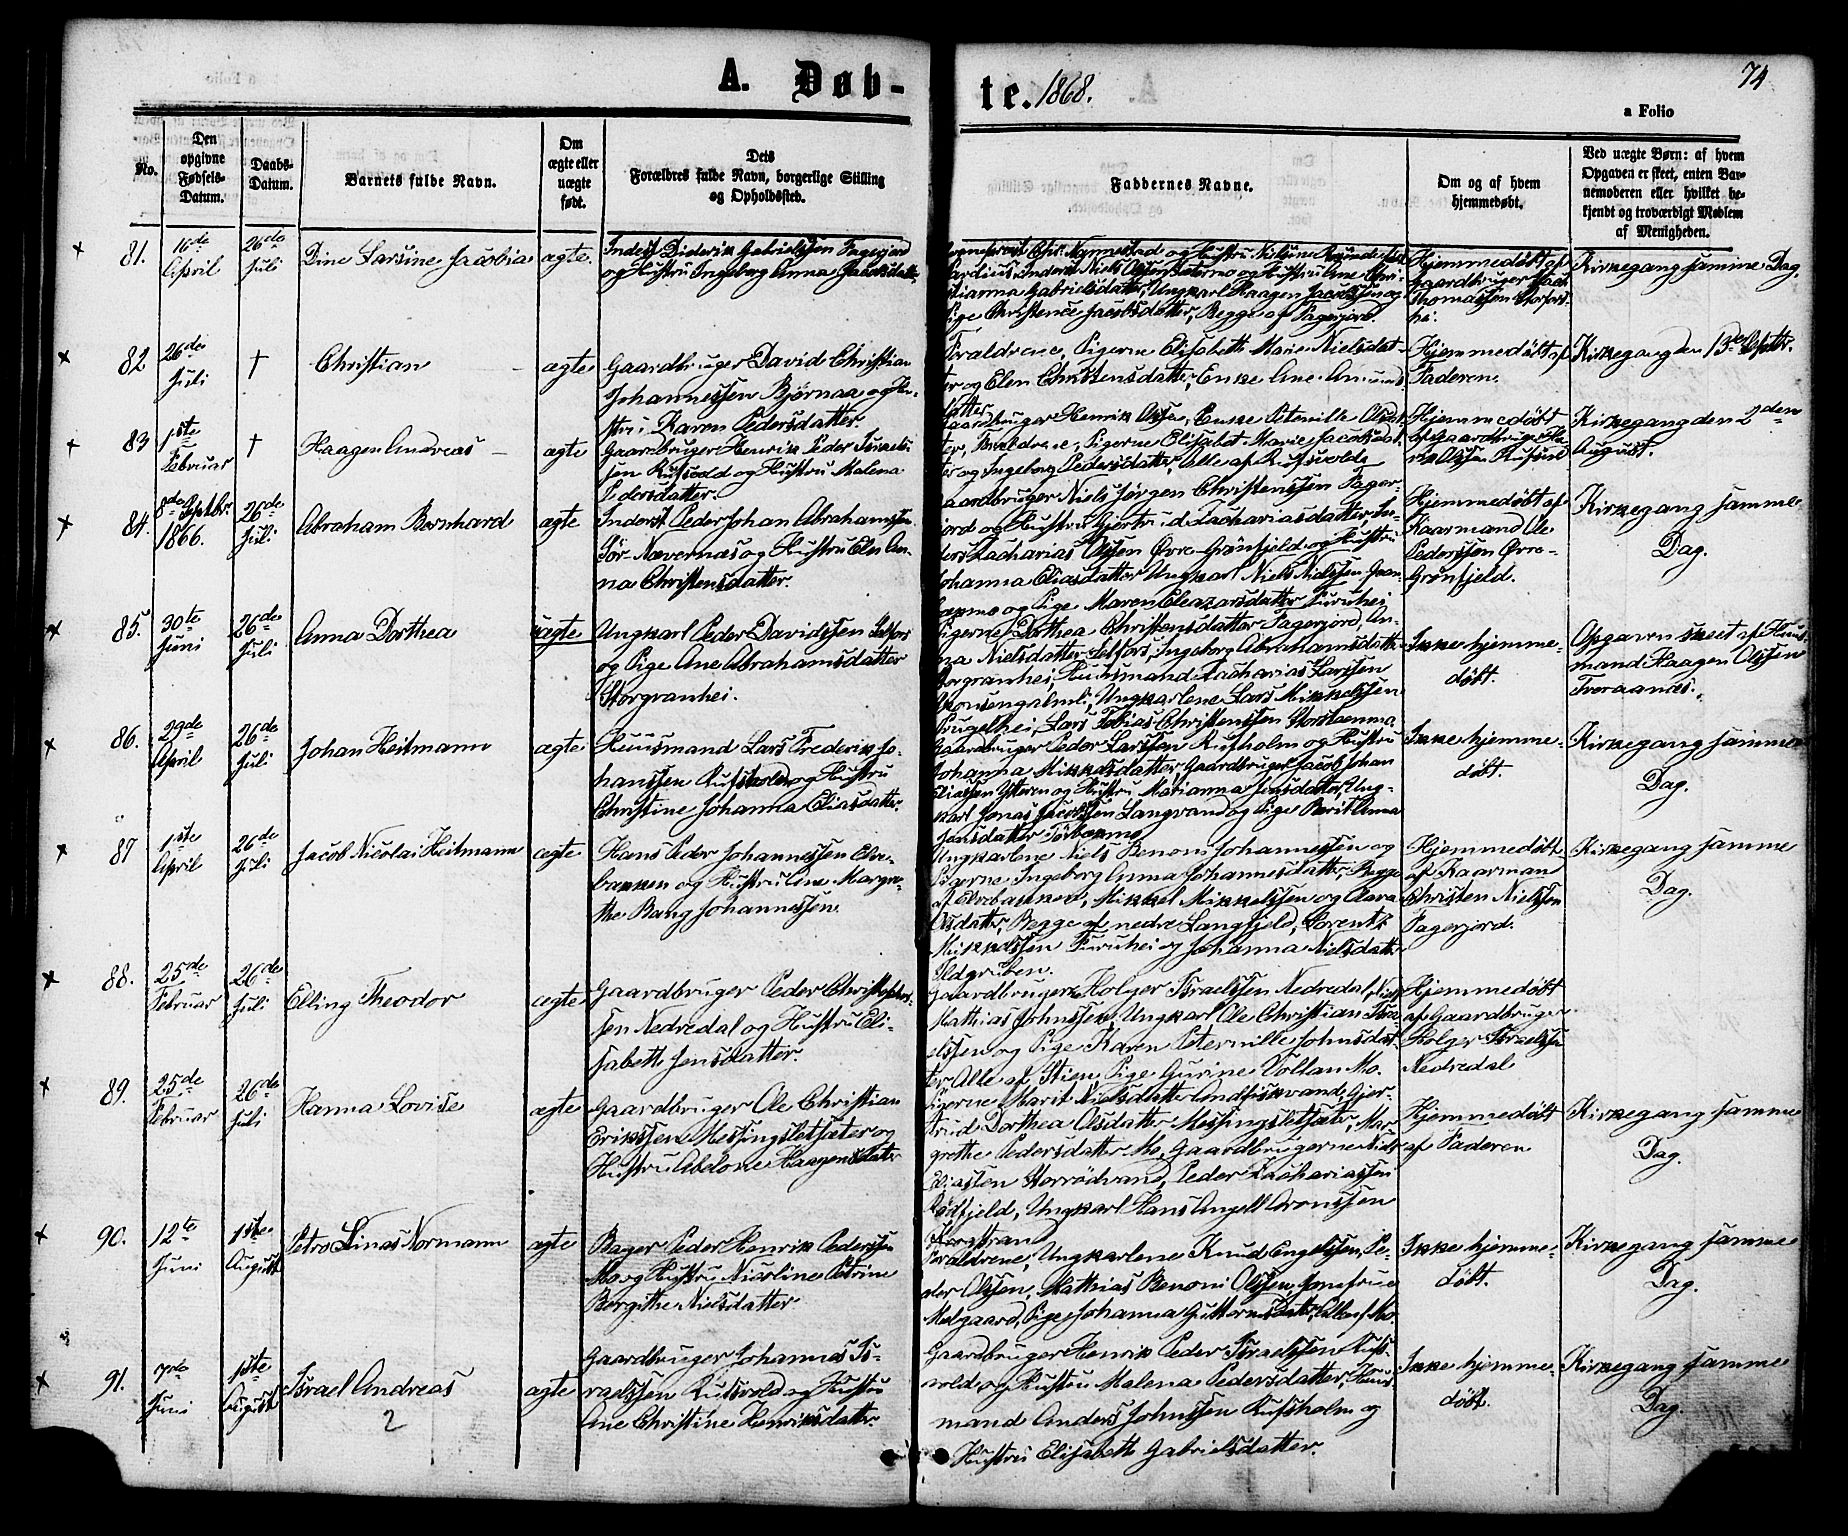 A. Døb-
te. 1868.
74
a Folio
No.
Den
opgivne
Fødsels-
Datum.
Daabs-
Datum.
Barnets fulde Navn.
Om
ægte eller
uægte
født.
Dets
Forældres fulde Navn, borgerlige Stilling
og Opholdssted.
Faddernes Navne.
Om og af hvem
hjemmedøbt.
Ved uægte Børn: af hvem
Opgaven er skeet, enten Bar-
nemoderen eller hvilket be-
kjendt og troværdigt Medlem
af Menigheden.
81.
16de
April
26de
Juli
Dine Larsine Jacobia
ægte
Inderst Diderik Gabrielssen Fagerjord
og Hustru Ingeborg Anna Jacobsdatter
og Hustru Nilsine
Inderst Niels Olssen og Hustru Ane Chri-
stianna Gabrielsdatter, Ungkarl Haagen Jacobssen og
Pige Christence Jacobsdatter, Begge af Fagerjord.
Hjemmedøbt af
Gaardbruger
Thomassen Storfors-
hei.
Kirkegang samme Dag.
82
26de
Juli
†
Christian
ægte
Gaardbruger David Christian
Johannessen Bjørnaa og Hu-
stru Karen Pedersdatter
Foraldrene, Pigerne Elisabeth Marie Nielsdat-
ter og Elen Christensdatter, Enke Ane Amunds
datter
Hjemmedøbt af
Faderen.
Kirkegang den 13de Septbr.
83
1ste
Februar
†
Haagen Andreas
ægte
Gaardbruger Henrik Peder Israels-
sen Rufsvold og Hustru Malena
Pedersdatter.
Gaardbruger Henrik Olssen, Enke Peternille Olsdat-
ter, Foraldrene, Pigerne Elisabet Marie Jacobsdat-
ter og Ingeborg Pedersdatter, Alle af Rufsvold
Hjemmedøbt
af Gaardbruger Hen-
rik Olssen
Kirkegang den 2den
August.
84.
8de Septbr.
1866.
26de
Juli
Abraham Bernhard
ægte
Inderst Peder Johan Abrahamssen
Sør-Nævernæs og Hustru Elen An-
na Christensdatter.
Gaardbruger Niels Jørgen Christenssen Fager-
jord og Hustru Gjertrud Zachariasdatter, In-
derst Zacharias Olssen Øvre-Grønfjeld og Hustru
Johanna Eliasdatter Ungkarl Niels Nielssen Gran-
og Pige Maren Eleazarsdatter Furuhei
Hjemmedøbt af
Kaarmand Ole
Pederssen Øvre-
Grønfjeld.
Kirkegang samme
Dag.
85.
30te
Juni
26de
Juli
Anna Dorthea
uægte
Ungkarl Peder Davidssen Selfors
og Pige Ane Abrahamsdatter
Storgranhei.
Pigerne Dorthea Christensdatter Fagerjord, An-
na Nielsdatter Selfors, Ingeborg Abrahamsdatter
Storgranhei, Huusmand Zacharias Larssen
Ungkarlene Lars Mikkelssen
Prugelhei, Lars Tobias Christenssen
Ikke hjemme-
døbt.
Opgaven skeet af Huus-
mand Haagen Olssen
Tveraanæs.
86.
29de
April
26de
Juli
Johan Heitmann
ægte
Huusmand Lars Frederik Jo-
hanssen Rufsholm og Hustru
Christine Johanna Eliasdatter.
Gaardbruger Peder Larssen Rufsholm og Hustru
Johanna Mikkelsdatter, Gaardbruger Jacob Johan
Eliassen Ytteren og Hustru Marianna Jonsdatter, Ung-
karl Jonas Jacobssen Langvand og Pige Berit Anna
Jensdatter
Ikke hjemme-
døbt.
Kirkegang samme
Dag.
87
1ste
April
26de
Juli
Jacob Nicolai Heitmann
ægte
Hans Peder Johannessen Elve-
bakken og Hustru Ane Margre-
the Bang Johannessen
Ungkarlene Niels Benoni Johannessen og
Pigerne Ingeborg Anna Johannesdatter, Begge
af Elvebakken, Mikkel Mikkelssen og Clara
Olsdatter, Begge af nedre Langfjeld, Lorentz
Mikkelssen Furuhei og Johanna Nielsdatter
Ildgruben.
Hjemmedøbt
af Kaarmand
Christen Nielssen
Fagerjord.
Kirkegang samme
Dag.
88.
25de
Februar
26de
Juli
Elling Theodor
ægte
Gaardbruger Peder Christophers-
sen Nedredal og Hustru Eli-
sabeth Jensdatter.
Gaardbruger Holger Israelssen Nedredal,
Mathias Johnssen, Ungkarl Ole Christian Isra-
elssen og Pige Karen Peternille Johnsdat-
ter Alle af Stien, Pige Gurine Vollan Mo.
Hjemmedøbt
af Gaardbruger
Holger Israelssen
Nedredal
89.
25de
Februar
26de
Juli
Hanna Lovise
ægte
Gaardbruger Ole Christian
Erikssen Messingsletsæter og
Hustru Abelone Haagensdatter
Pigerne Marit Nielsdatter Andfiskvand, Gjer-
trud Dorthea Olsdatter Messingsletsæter, Mar-
grethe Pedersdatter Mo, Gaardbrugerne Niels
Eliassen Storrødvand, Peder Zachariassen
Rødfjeld, Ungkarl Hans Angell Aronssen
Hjemmedøbt
af Faderen
Kirkegang samme
Dag.
90.
12te
Juni
1ste
August
Petro Linas Normann
ægte
Bager Peder Henrik Pederssen
Mo og Hustru Nicoline Petrine
Bergithe Nielsdatter
Foraldrene, Ungkarlene Knud Engelssen, Pe-
der Olssen, Mathias Benoni Olssen, Jomfrue
Melgaard, Pige Johanna Guttormsdatter, Alle af Mo.
Ikke hjemme-
døbt.
Kirkegang samme
Dag.
91.
7de
Juni
1ste
August
Israel Andreas
2
ægte
Gaardbruger Johannes Is-
raelssen Rufsvold og Hustru
Ane Christine Henriksdatter.
Gaardbruger Henrik Peder Israelssen Rufs-
vold og Hustru Malena Pedersdatter, Huus-
mand Anders Johnssen Rufsholm og
Hustru Elisabeth Gabrielsdatter.
Ikke hjemme-
døbt.
Kirkegang samme
Dag.